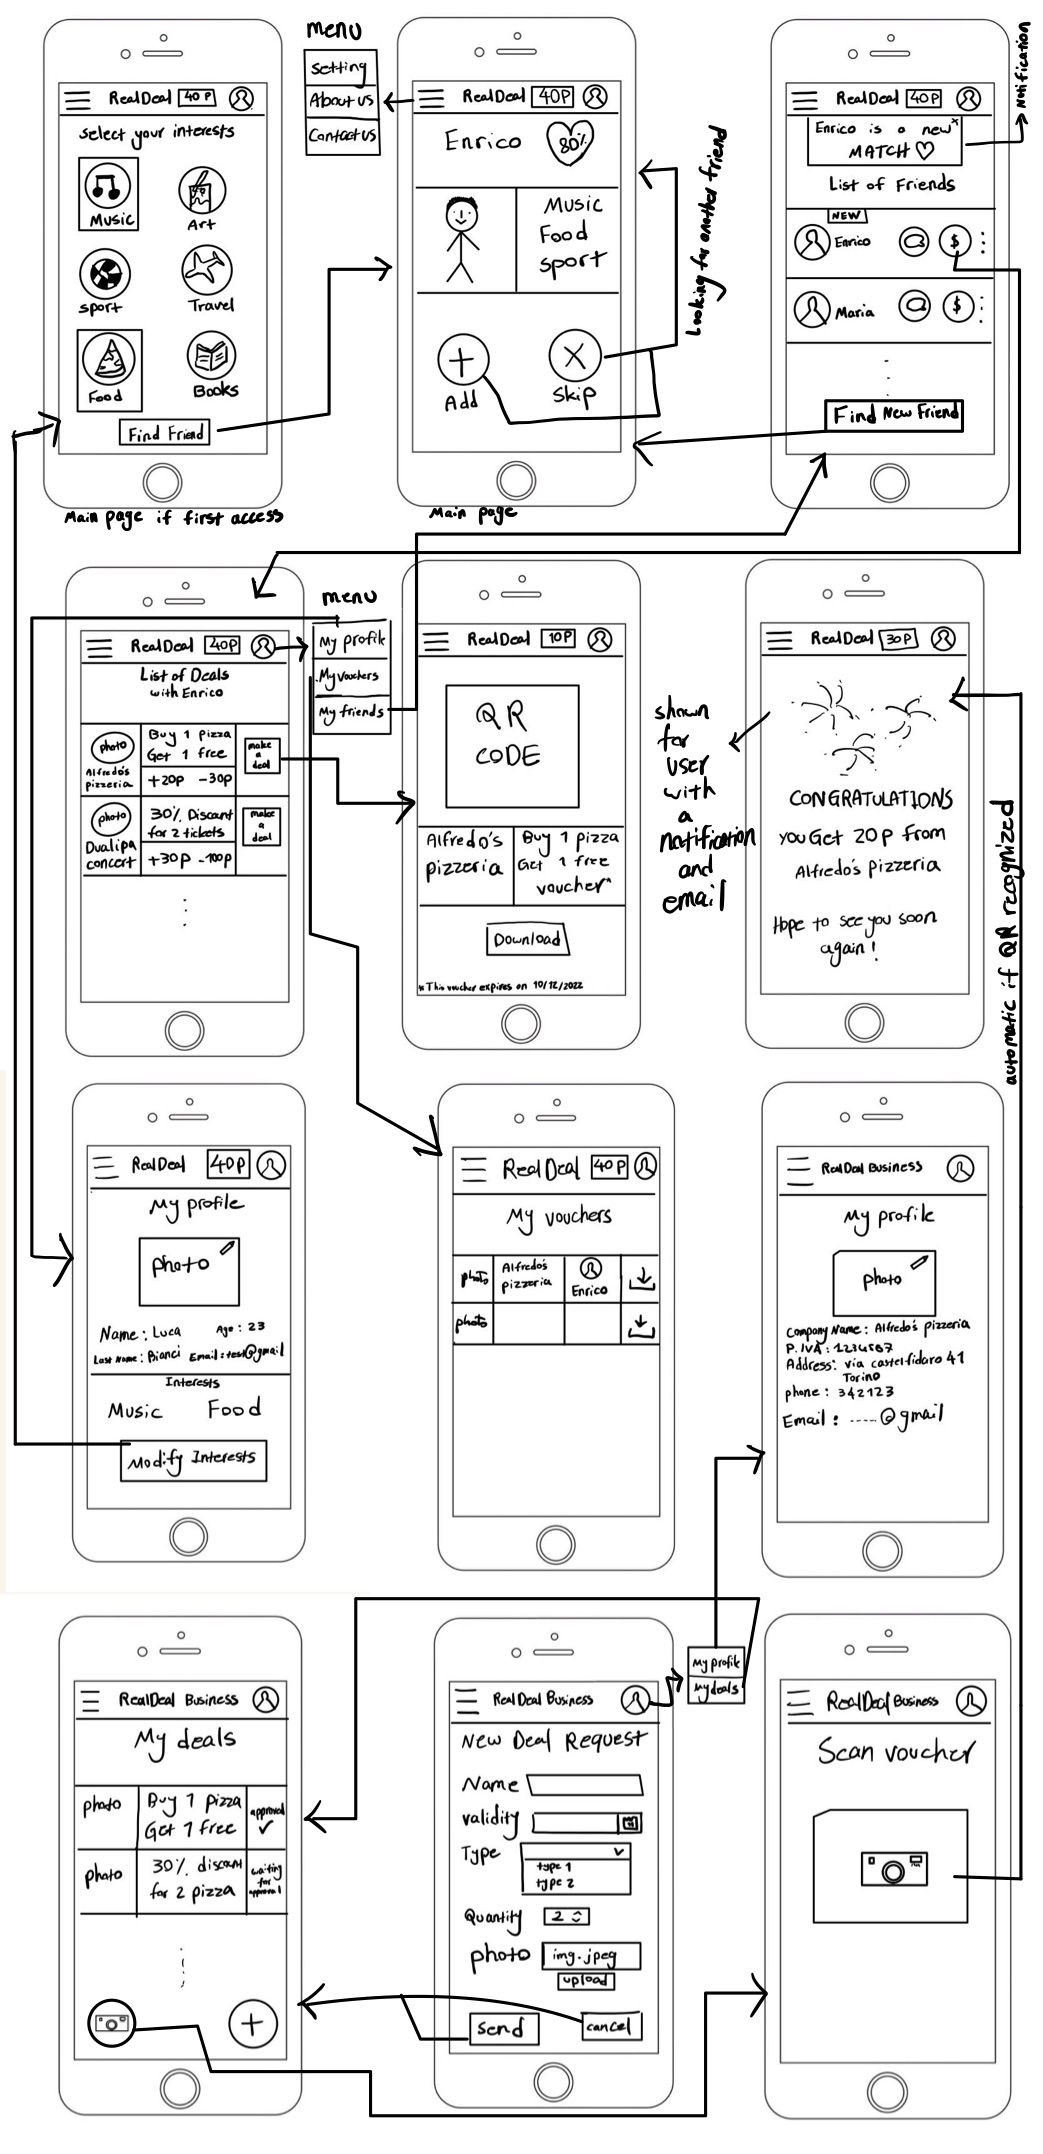 RealDeal 40P
select your interests
Music
Art
sport
Travel
Food
Books
Find Friend
Main page if first access
menu
setting
About us
Contact us
RealDeal 40P
Enrico 80%
Music
Food
sport
Add
Skip
Main page
Looking for another friend
RealDeal 40P
Enrico is a new x
MATCH
List of Friends
NEW
Enrico $
Maria $
Find New Friend
Notification
RealDeal 40P
List of Deals
with Enrico
photo
Alfredo's
pizzeria
Buy 1 pizza
Get 1 free
+20p -30p
make
a
deal
photo
Dualipa
concert
30% Discount
for 2 tickets
+30p -100p
make
a
deal
menu
My profile
My vouchers
My friends
RealDeal 10P
QR
CODE
Alfredo's
pizzeria
Buy 1 pizza
Get 1 free
voucher*
Download
* This voucher expires on 10/12/2022
RealDeal 30P
CONGRATULATIONS
you Get 20P from
Alfredo's pizzeria
Hope to see you soon
again!
shown
for
user
with
a
notification
and
email
automatic if QR recognized
RealDeal 40P
My profile
photo
Name: Luca Age: 23
Last Name: Bianci Email: test@gmail
Interests
Music Food
Modify Interests
RealDeal 40P
My vouchers
photo
Alfredo's
pizzeria
Enrico
photo
RealDeal Business
My profile
photo
Company Name: Alfredo's pizzeria
P. IVA: 1234567
Address: via castelfidaro 41
Torino
phone: 342123
Email: ----@gmail
RealDeal Business
My deals
photo
Buy 1 pizza
Get 1 free
approval
photo
30% discount
for 2 pizza
waiting
for
approval
RealDeal Business
New Deal Request
Name
validity
Type
type 1
type 2
Quantity 2
photo img.jpeg
upload
send cancel
My profile
My deals
RealDeal Business
Scan voucher